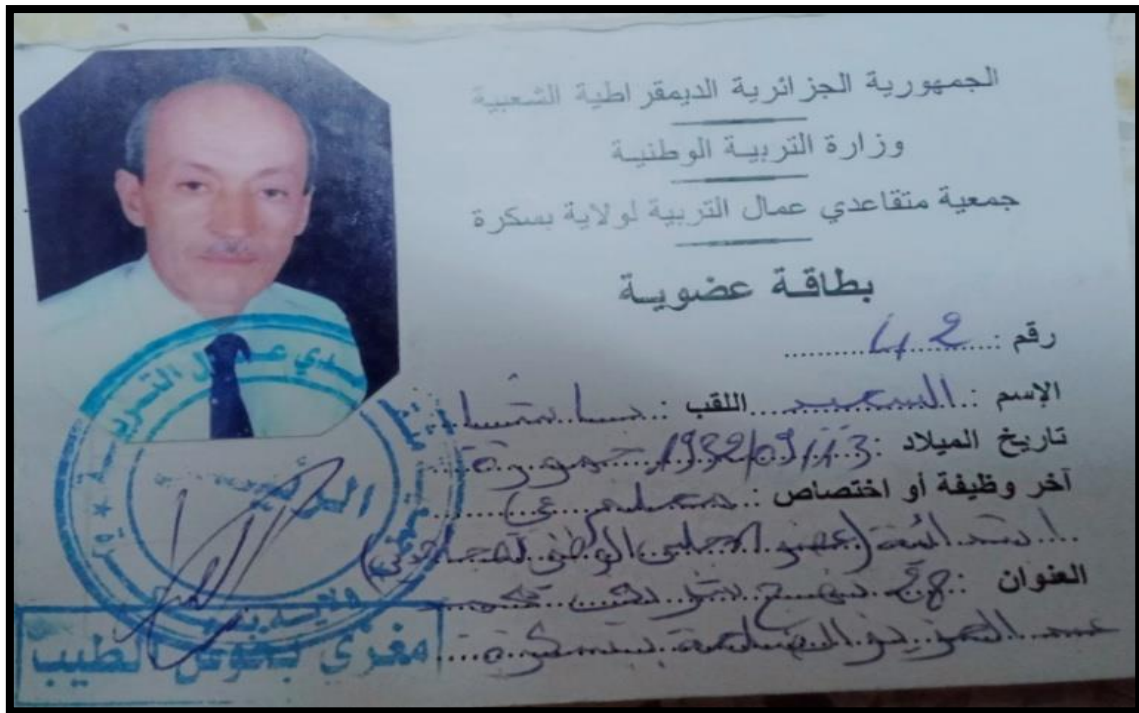 الجمهورية الجزائرية الديمقراطية الشعبية
وزارة التربية الوطنية
جمعية متقاعدي عمال التربية لولاية بسكرة
بطاقة عضوية
رقم : 42
الإسم : السعيد اللقب : باشا
تاريخ الميلاد : 1932/09/13 جمورة
آخر وظيفة أو اختصاص : معلم
(عضو المجلس الوطني
العنوان : نهج محمد
عبد العزيز بسكرة
الرئيس
مغزي بخوش الطيب